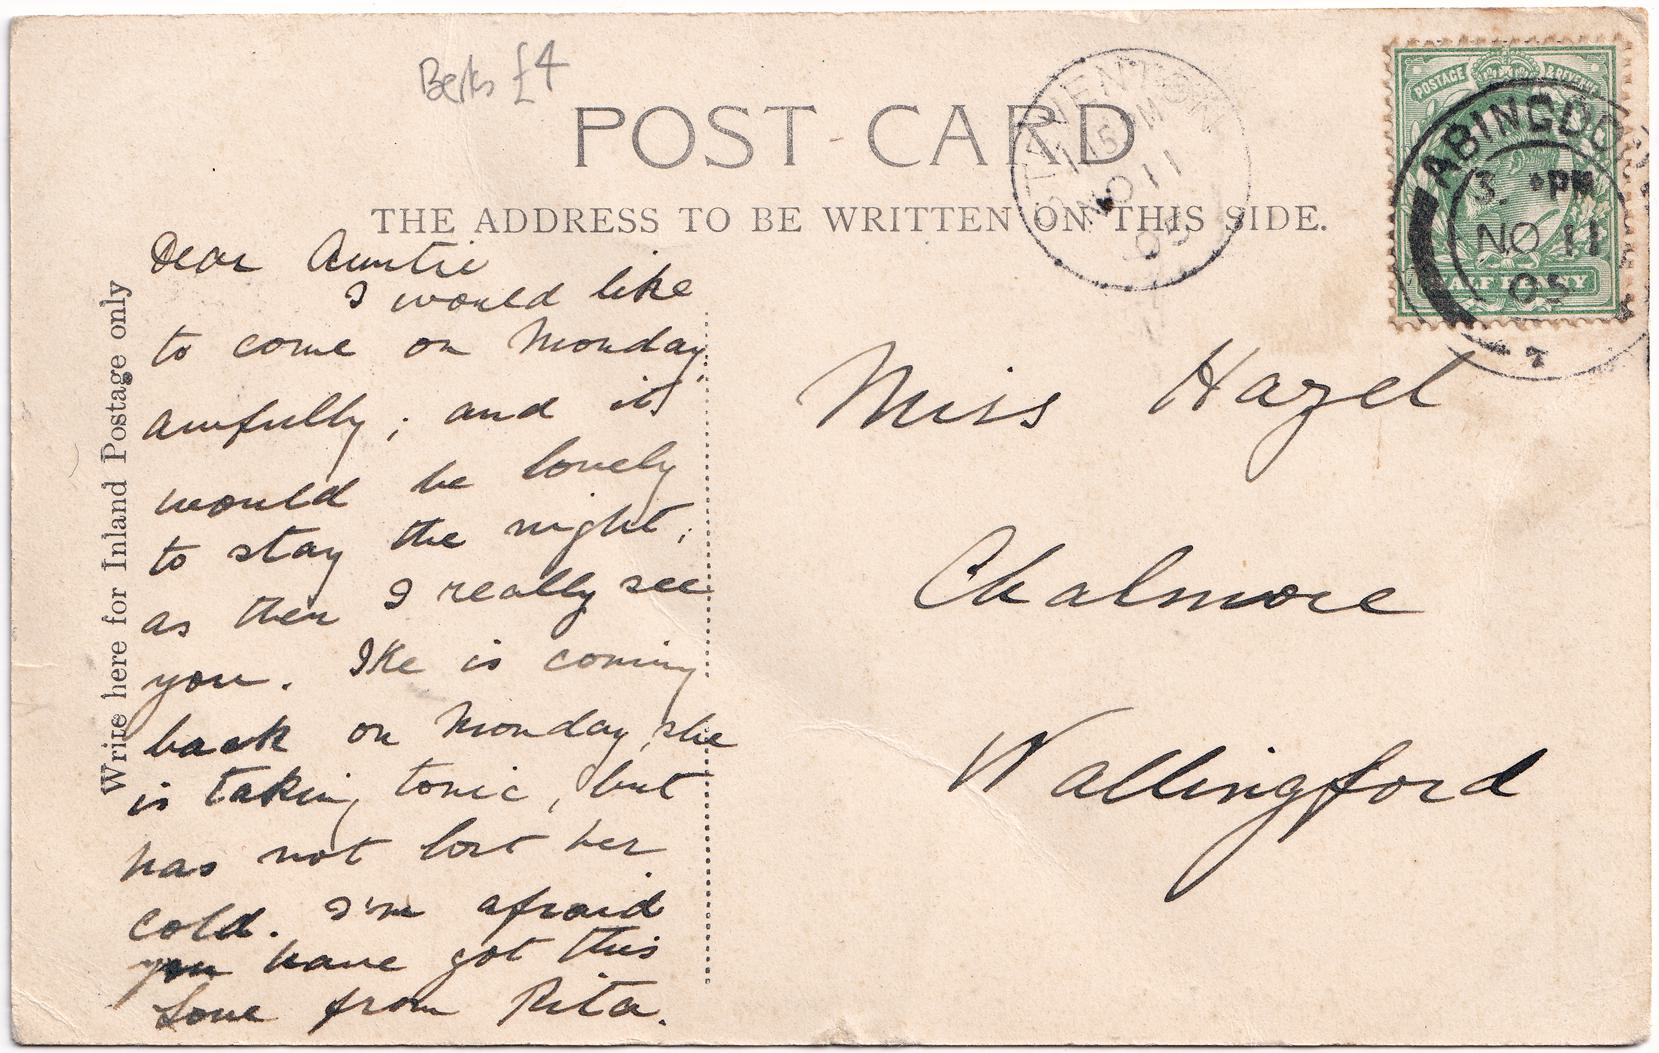 Berks £4
POST CARD
THE ADDRESS TO BE WRITTEN ON THIS SIDE.
Write here for Inland Postage only
Dear Auntie
I would like
to come on Monday,
awfully; and it
would be lovely
to stay the night;
as then I really see
you. Ike is coming
back on Monday, she
is taking tonic, but
has not lost her
cold. I'm afraid
you have got this
Love from Rita.
STEVENTON
1.15 PM
NO 11
05
POSTAGE & REVENUE
HALF PENNY
ABINGDON
3. PM
NO 11
05
7
Miss Hazel
Chalmore
Wallingford